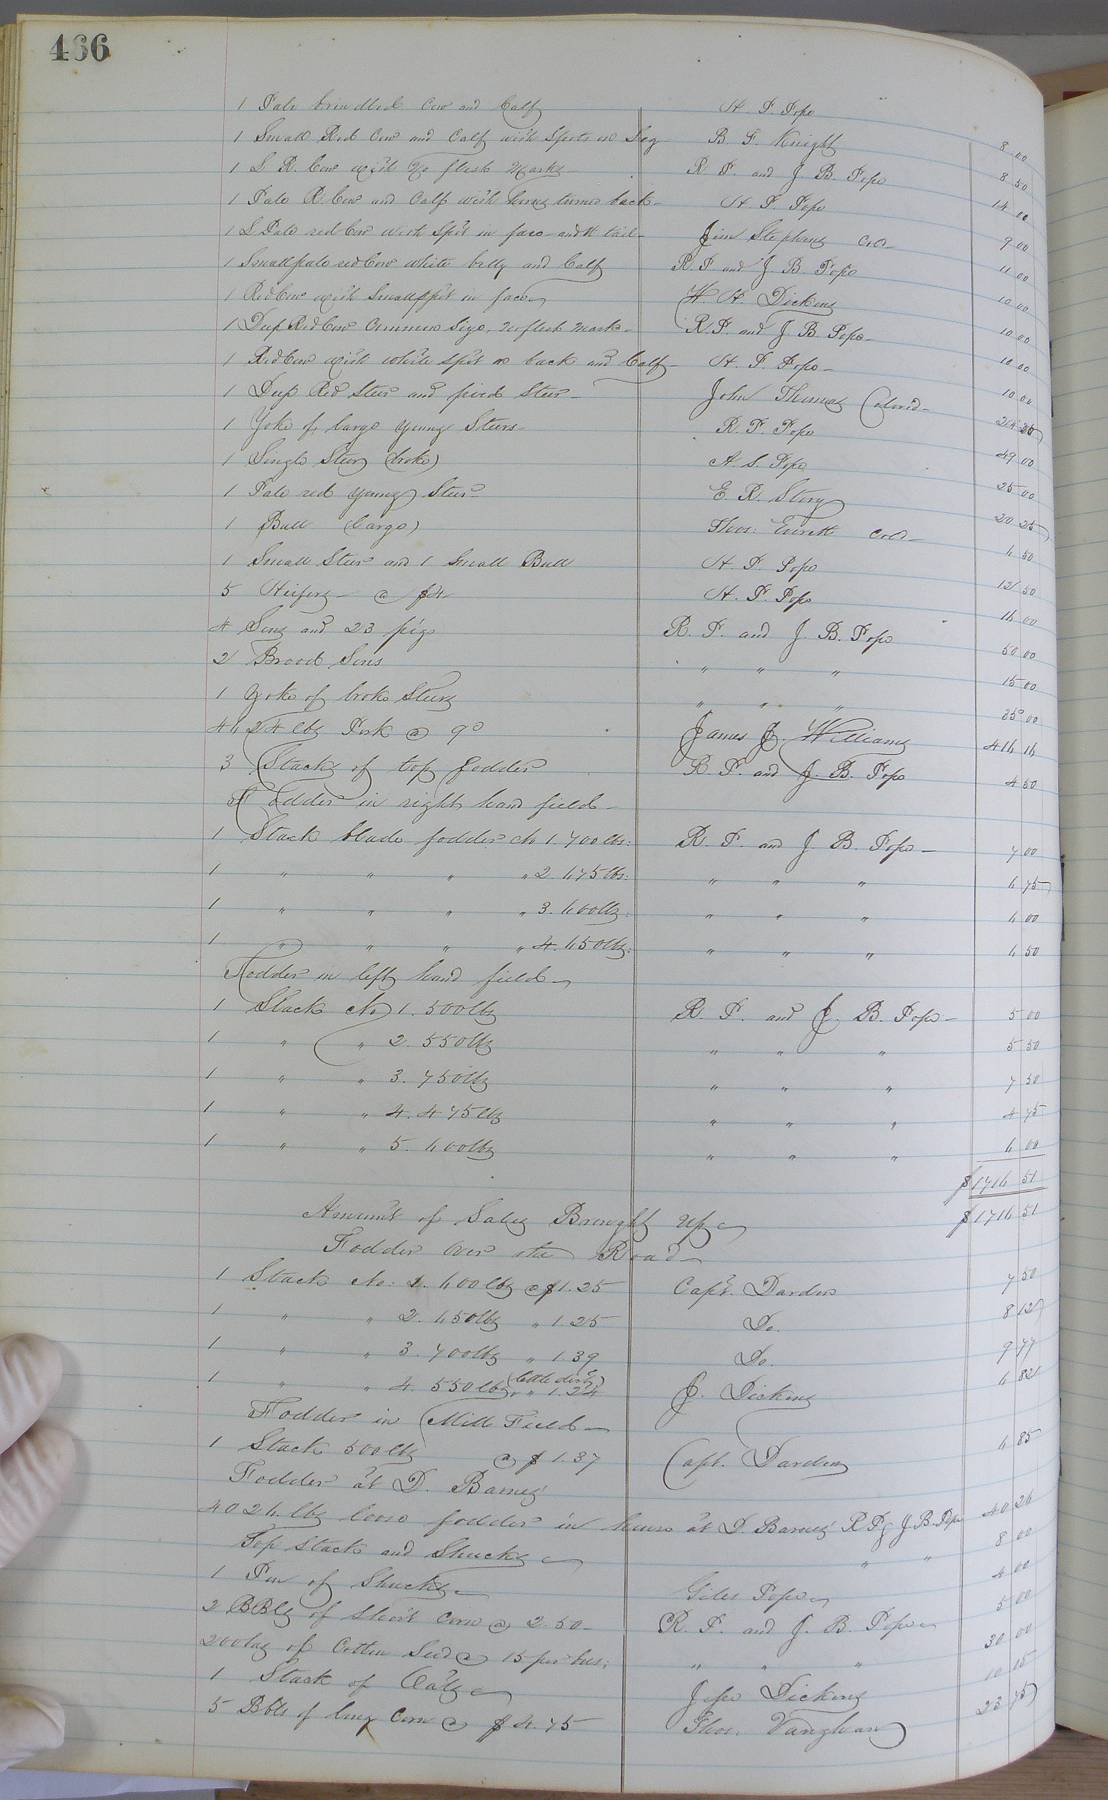 466
1 Pale brindled Cow and Calf H. P. Pope 8 00
1 Small Red Cow and Calf with Spots on Leg B. F. Knight 8 50
1 L R. Cow with no flesh Marks R P. and J B. Pope 14 00
1 Pale R Cow and Calf with horns turned back H. P. Pope 9 00
1 L Pale red Cow with Spot in face and W tail Jim Stephens Col 11 00
1 Small pale red Cow white belly and Calf R. P. and J B Pope 10 00
1 Red Cow with Small spot in face W. H. Dickens 10 00
1 Deep Red Cow Common Size, no flesh Mark R P. and J B Pope 10 00
1 Red Cow with white spot on back and Calf H. P. Pope 10 00
1 Deep Red Steer and pied Steer John Thomas Colored 26 25
1 Yoke of large young Steers R. P. Pope 49 00
1 Single Steer (broke) A. S. Pope 25 00
1 Pale red young Steer E. R. Story 20 25
1 Bull (large) Thos. Everett Col 6 50
1 Small Steer and 1 Small Bull H. P. Pope 12 50
5 Heifers @ $4 H. P. Pope 16 00
4 Sows and 23 pigs R. P. and J B. Pope 50 00
2 Brood Sows " " " 15 00
1 Yoke of broke Steers " " " 25 00
4624 lbs Pork @ 9c James J. Williams 416 16
3 Stacks of top fodder R P. and J. B. Pope 4 50
Fodder in right hand field
1 Stack blade fodder No 1. 700 lbs. R P. and J B. Pope 7 00
1 " " " " 2. 675 lbs. " " " 6 75
1 " " " " 3. 600 lbs. " " " 6 00
1 " " " " 4. 650 lbs. " " " 6 50
Fodder in left hand field
1 Stack No 1. 500 lbs R. P. and J. B. Pope 5 00
1 " " 2. 550 lbs " " " 5 50
1 " " 3. 750 lbs " " " 7 50
1 " " 4. 475 lbs " " " 4 75
1 " " 5. 600 lbs " " " 6 00
$1716 51
Amount of Sales Brought up $1716 51
Fodder Over the Road
1 Stack No. 1. 600 lbs @ $1.25 Capt. Darden 7 50
1 " " 2. 650 lbs " 1.25 Do. 8 12
1 " " 3. 700 lbs " 1.39 Do. 9 77
1 " " 4. 550 lbs (little dirty) " 1.24 J. Dickens 6 82
Fodder in Mill Field
1 Stack 500 lbs @ $1.37 Capt. Darden 6 85
Fodder at D. Barnes'
4026 lbs loose fodder in house at D Barnes' R P & J B. Pope 40 26
Top Stack and Shucks " " 8 00
1 Pen of Shucks Giles Pope 4 00
2 BBls of Short Corn @ 2.50 R. P. and J. B. Pope 5 00
200 bus of Cotton Seed @ 15 per bus. " " " 30 00
1 Stack of Oats Jesse Dickens 10 15
5 Bbls of long Corn @ $4.75 Thos. Vaughan 23 75